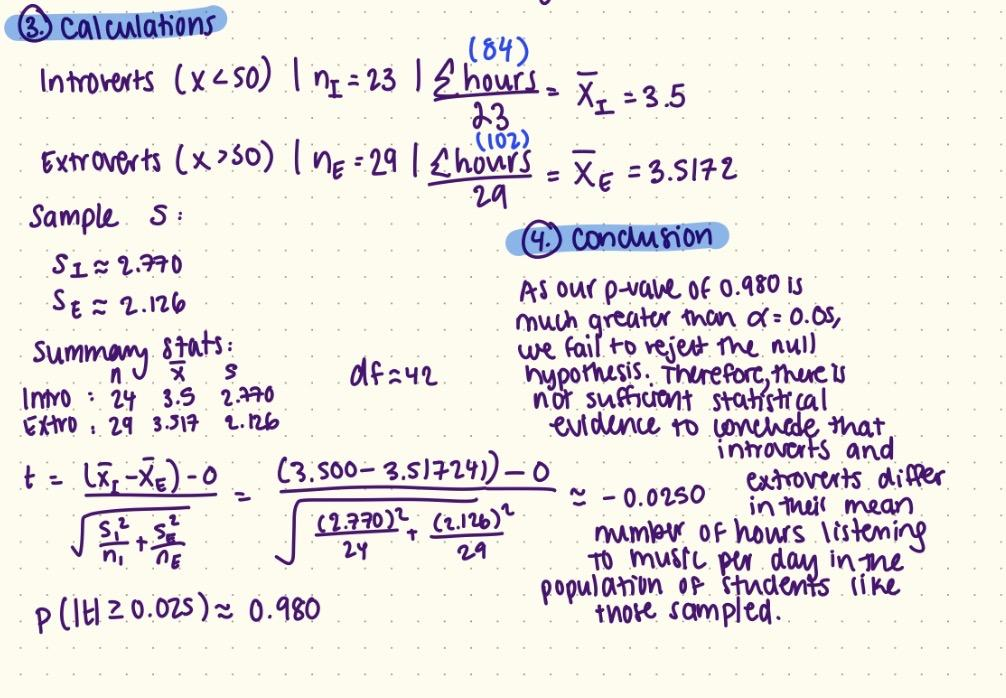 ③ Calculations
(84)
Introverts (x < 50) | n_I = 23 | Σ hours / 23 = x̄_I = 3.5
(102)
Extroverts (x > 50) | n_E = 29 | Σ hours / 29 = x̄_E = 3.5172
Sample S:
S_I ≈ 2.770
S_E ≈ 2.126
Summary Stats:
n x̄ s
Intro : 24 3.5 2.770
Extro : 29 3.517 2.126
df ≈ 42
t = (x̄_I - x̄_E) - 0 / √(S_1²/n_1 + S_E²/n_E) = (3.500 - 3.517241)) - 0 / √((2.770)²/24 + (2.126)²/29) ≈ - 0.0250
P(|t| ≥ 0.025) ≈ 0.980
④ Conclusion
As our p-value of 0.980 is
much greater than α = 0.05,
we fail to reject the null
hypothesis. Therefore, there is
not sufficient statistical
evidence to conclude that
introverts and
extroverts differ
in their mean
number of hours listening
to music per day in the
population of students like
those sampled.